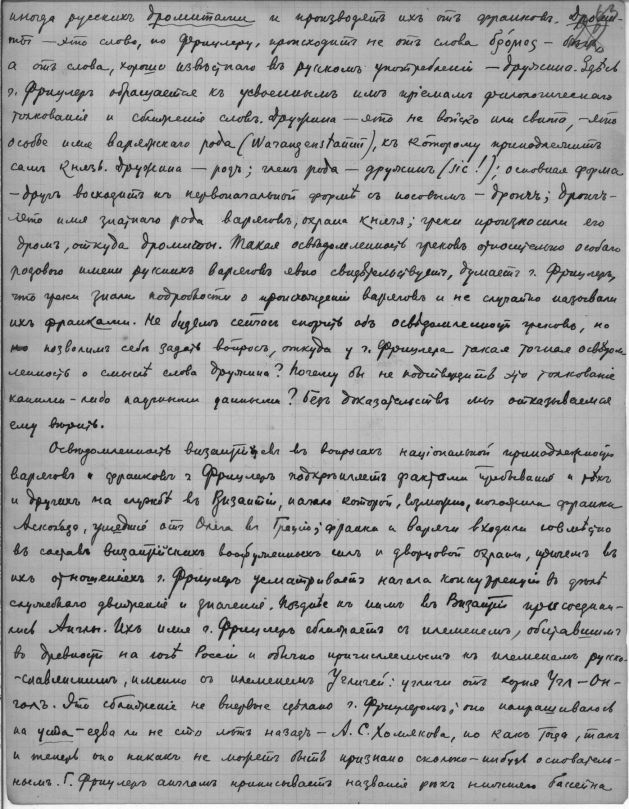 иногда русскихъ дромитами и производятъ ихъ отъ франковъ. Дроми-
ты – это слово, по Фрицлеру, происходитъ не отъ слова δρόμος –
а отъ слова, хорошо извѣстнаго въ русскомъ употребленіи – дружина. Здѣсь
г. Фрицлеръ обращается къ усвоеннымъ имъ пріемамъ филологическаго
толкованія и сближенія словъ. Дружина – это не войско или свита, – это
особое имя варяжскаго рода (Warangenstamm), къ которому принадлежитъ
самъ князь. Дружина – родъ; членъ рода – дружинъ (sic!); основная форма
– другъ восходитъ къ первоначальной формѣ съ носовымъ – дронгъ; дронгъ –
это имя знатнаго рода варяговъ, охрана князя; греки произносили его
дромъ, откуда дромиты. Такая освѣдомленность грековъ относительно особаго
родового имени русскихъ варяговъ явно свидѣтельствуетъ, думаетъ г. Фрицлеръ,
что греки знали подробности о происхожденіи варяговъ и не случайно называли
ихъ франками. Не будемъ сейчасъ спорить объ освѣдомленности грековъ, но
позволимъ себѣ задать вопросъ, откуда у г. Фрицлера такая точная освѣдом-
ленность о смыслѣ слова дружина? Почему бы не подтвердить это толкованіе
какими-либо научными данными? Безъ доказательствъ мы отказываемся
ему вѣрить.
Освѣдомленность византійцевъ въ вопросахъ національной принадлежности
варяговъ и франковъ г. Фрицлеръ подкрѣпляетъ фактами пребыванія и тѣхъ
и другихъ на службѣ въ Византіи, начало которой, возможно, положили франки
Аскольда, ушедшіе отъ Олега въ Грецію; франки и варяги входили совмѣстно
въ составъ византійскихъ вооруженныхъ силъ и дворцовой охраны, причемъ въ
ихъ отношеніяхъ г. Фрицлеръ усматриваетъ начала конкуренціи въ дѣлѣ
служебнаго движенія и значенія. Позднѣе къ нимъ въ Византіи присоедини-
лись Англы. Ихъ имя г. Фрицлеръ сближаетъ съ племенемъ, обитавшимъ
въ древности на югѣ Россіи и обычно причисляемымъ къ племенамъ русско-
-славянскимъ, именно съ племенемъ Угличей: угличи отъ корня Угл – Он-
голъ. Это сближеніе не впервые сдѣлано г. Фрицлеромъ; оно напрашивалось
на уста – едва ли не сто лѣтъ назадъ – А.С. Хомякова, но какъ тогда, такъ
и теперь оно никакъ не можетъ быть признано сколько-нибудь основатель-
нымъ. Г. Фрицлеръ англамъ приписываетъ названія рѣкъ нижняго бассейна